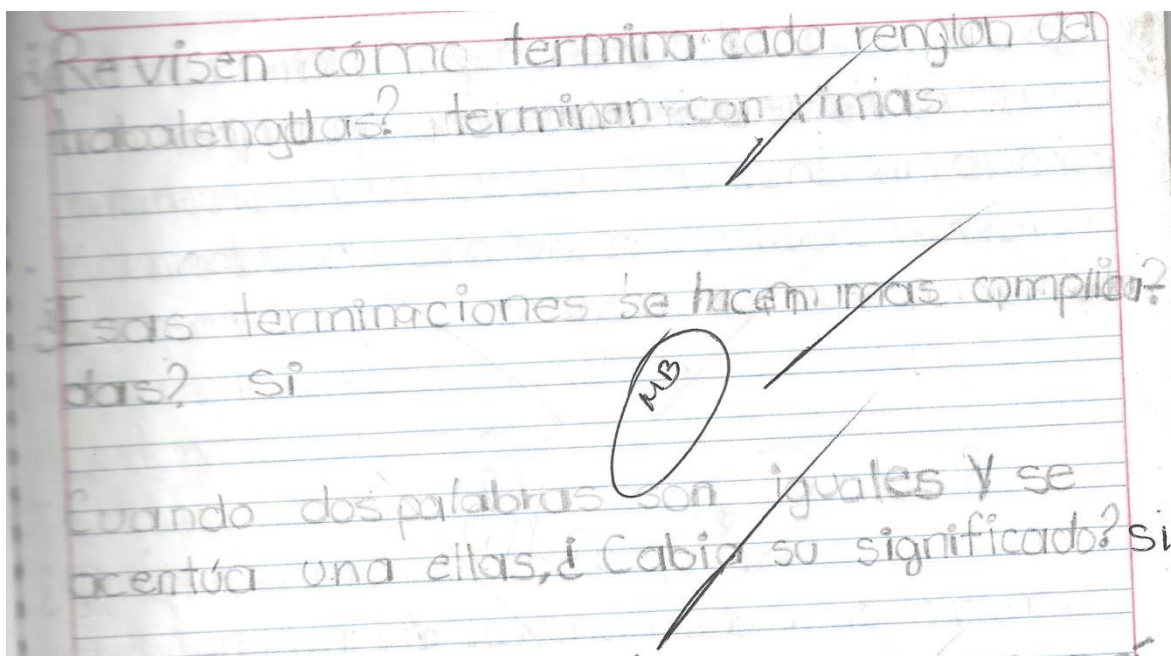 ¿Revisen cómo termina cada renglon del
trabalenguas? terminan con rimas
¿Esas terminaciones se hacem mas complica?
das? si
MB
Cuando dos palabras son iguales y se
acentúa una ellas, ¿Cabia su significado? si